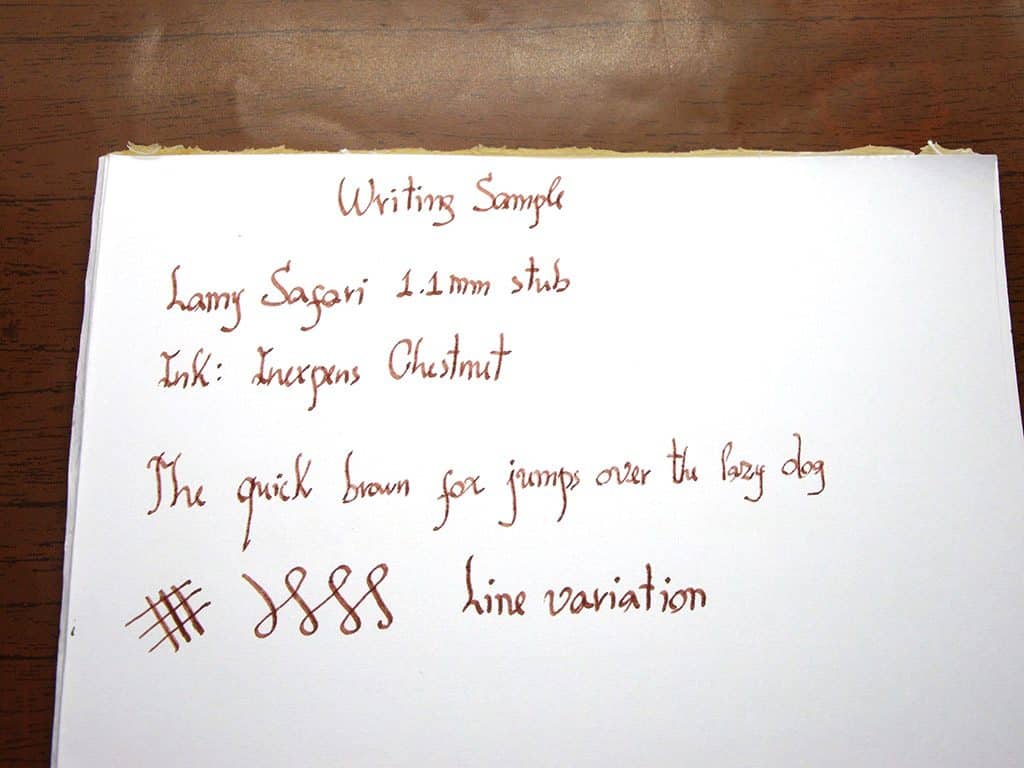 Writing Sample
Lamy Safari 1.1mm stub
Ink: Inexpens Chestnut
The quick brown fox jumps over the lazy dog
Line variation